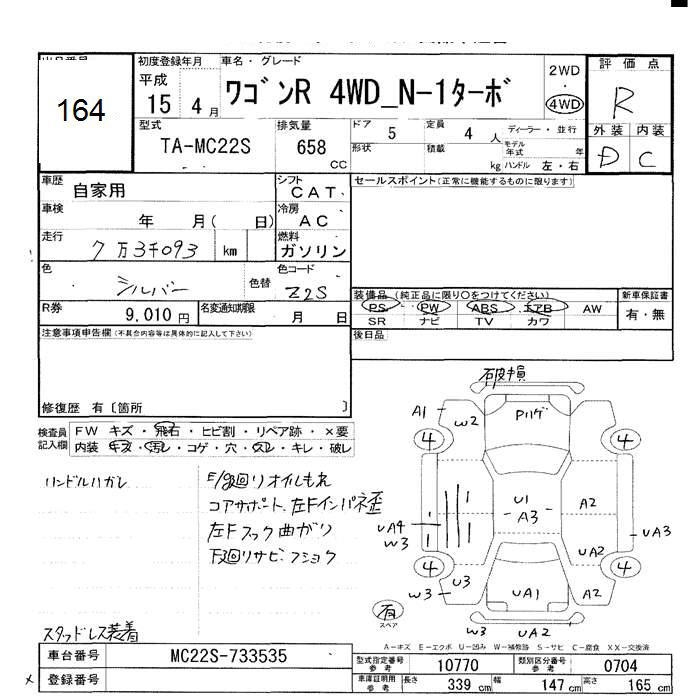 初度登録年月
車名・グレード
評価点
164
平成
15 年 4 月
ワゴンR 4WD_N-1ターボ
2WD
・
4WD
R
型式
TA-MC22S
排気量
658
CC
ドア 5
定員 4 人
ディーラー・並行
外装 内装
形状
積載 kg
モデル年式 年
ハンドル 左・右
D C
車歴 自家用
シフト CAT
セールスポイント(正常に機能するものに限ります)
車検 年 月( 日)
冷房 AC
走行 7万3千093 km
燃料 ガソリン
色 シルバー 色替
色コード Z2S
装備品(純正品に限り○をつけてください)
新車保証書
PS PW ABS エアB AW
有・無
SR ナビ TV カワ
R券 9,010 円
名変通知期限 月 日
注意事項申告欄(不具合内容等は具体的に記入して下さい)
後日品
修復歴 有〔箇所 〕
検査員記入欄
FW キズ・飛石・ヒビ割・リペア跡・×要
内装 キズ・汚レ・コゲ・穴・スレ・キレ・破レ
ハンドルハガレ
E/g廻リオイルもれ
コアサポート、左Fインパネ歪
左Fフック曲がり
下廻リサビ・フショク
スタッドレス装着
破損
A1
W2
Pハゲ
4
4
U1
A3
A2
UA4
W3
UA3
UA2
4
4
W3
U3
UA1
A2
有
スペア
W3
UA2
A-キズ E-エクボ U-凹み W-補修跡 S-サビ C-腐食 XX-交換済
車台番号 MC22S-733535
型式指定番号 参考 10770
類別区分番号 参考 0704
登録番号
車庫証明用 参考
長さ 339 cm
幅 147 cm
高さ 165 cm